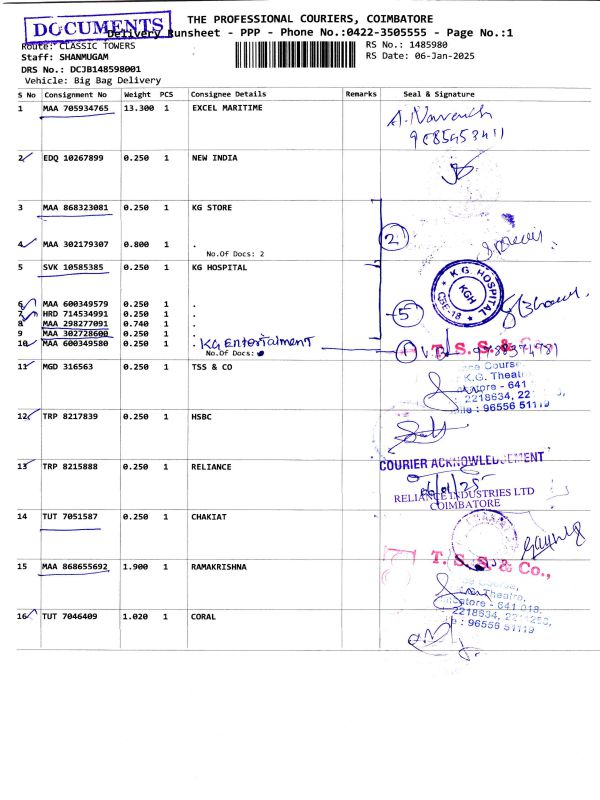 DOCUMENTS
THE PROFESSIONAL COURIERS, COIMBATORE
Delivery Runsheet - PPP - Phone No.:0422-3505555 - Page No.:1
Route: CLASSIC TOWERS
RS No.: 1485980
Staff: SHANMUGAM
RS Date: 06-Jan-2025
DRS No.: DCJB148598001
Vehicle: Big Bag Delivery
S No Consignment No Weight PCS Consignee Details Remarks Seal & Signature
1 MAA 705934765 13.300 1 EXCEL MARITIME
2 EDQ 10267899 0.250 1 NEW INDIA
3 MAA 868323081 0.250 1 KG STORE
2
4 MAA 302179307 0.800 1 .
No.Of Docs: 2
5 SVK 10585385 0.250 1 KG HOSPITAL
K.G. HOSPITAL
KGH
CBE-18
6 MAA 600349579 0.250 1 .
7 HRD 714534991 0.250 1 .
8 MAA 298277091 0.740 1 .
5
9 MAA 302728600 0.250 1 .
10 MAA 600349580 0.250 1 . KG Entertainment
No.Of Docs:
1
T. S. S. & Co.
11 MGD 316563 0.250 1 TSS & CO
K.G. Theatre
641
2218634, 22
96556 51119
12 TRP 8217839 0.250 1 HSBC
COURIER ACKNOWLEDGEMENT
13 TRP 8215888 0.250 1 RELIANCE
06/01/25
RELIANCE INDUSTRIES LTD
COIMBATORE
14 TUT 7051587 0.250 1 CHAKIAT
T. S. S. & Co.,
15 MAA 868655692 1.900 1 RAMAKRISHNA
Theatre,
641 018.
16 TUT 7046409 1.020 1 CORAL
2218634,
: 96556 51119